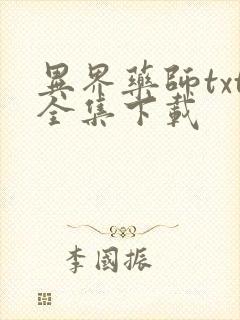 異界藥師txt
全集下載
李國振